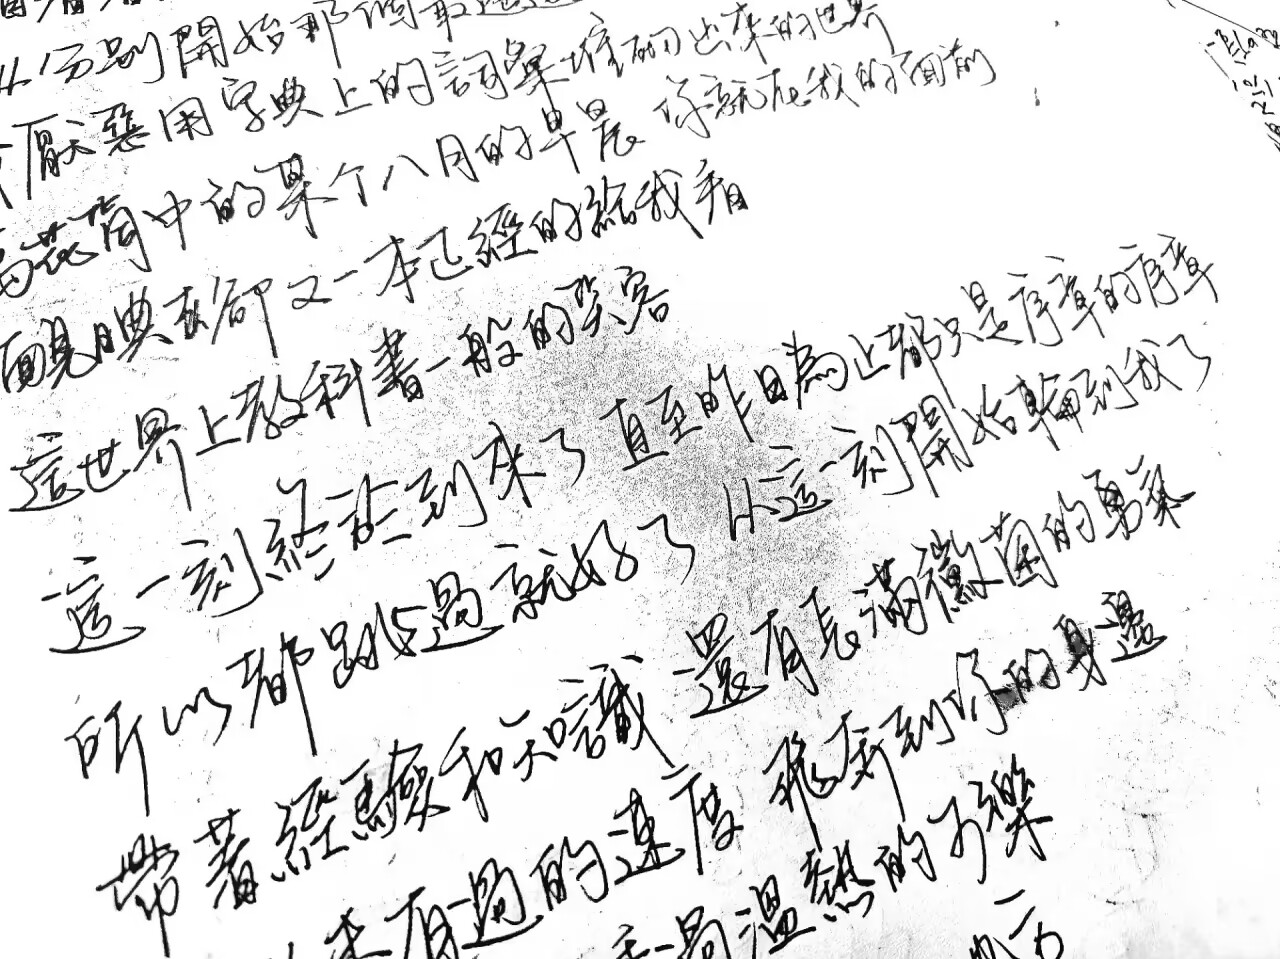 分別開始那個
厭惡用字典上的詞彙堆砌出來的世界
花筒中的某个八月的早晨 你就在我的面前
靦腆 却又一本正經的給我看
這世界上教科書一般的笑容
這一刻終於到來了 直至昨日為止都只是序章的序章
所以都跳過就好了 从這一刻開始輪到我了
帶著經驗和知識 還有長滿黴菌的勇氣
未有過的速度 飛奔到你的身邊
溫熱的